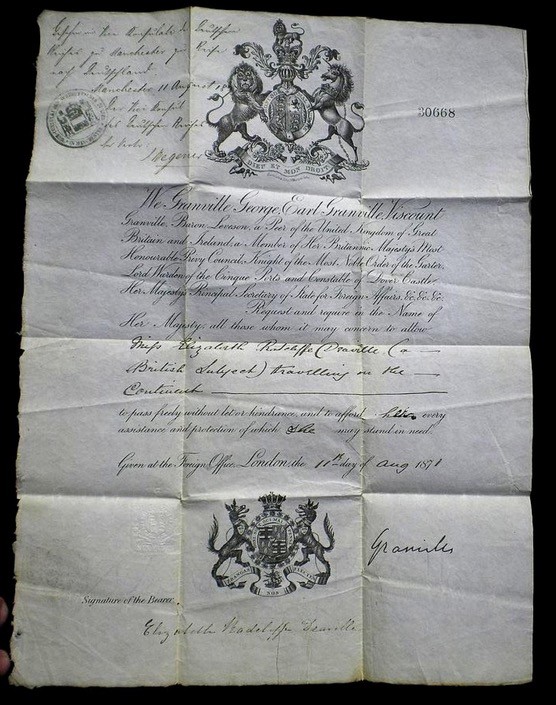 Gesehen im Konsulate des Deutschen
Reiches zu Manchester zur Reise
nach Deutschland
Manchester 11 August
Der Konsul
des Deutschen Reiches
30668
DIEU ET MON DROIT
We Granville George, Earl Granville, Viscount
Granville, Baron Leveson, a Peer of the United Kingdom of Great
Britain and Ireland, a Member of Her Britannic Majesty's Most
Honourable Privy Council, Knight of the Most Noble Order of the Garter,
Lord Warden of the Cinque Ports and Constable of Dover Castle,
Her Majesty's Principal Secretary of State for Foreign Affairs, &c. &c. &c.
Request and require in the Name of
Her Majesty, all those whom it may concern to allow
Miss Elizabeth Radcliffe (a
British Subject) travelling on the
Continent
to pass freely without let or hindrance, and to afford every
assistance and protection of which she may stand in need.
Given at the Foreign Office, London, the 11th day of Aug 1871
FRANGAS NON FLECTES
Granville
Signature of the Bearer.
Elizabeth Radcliffe